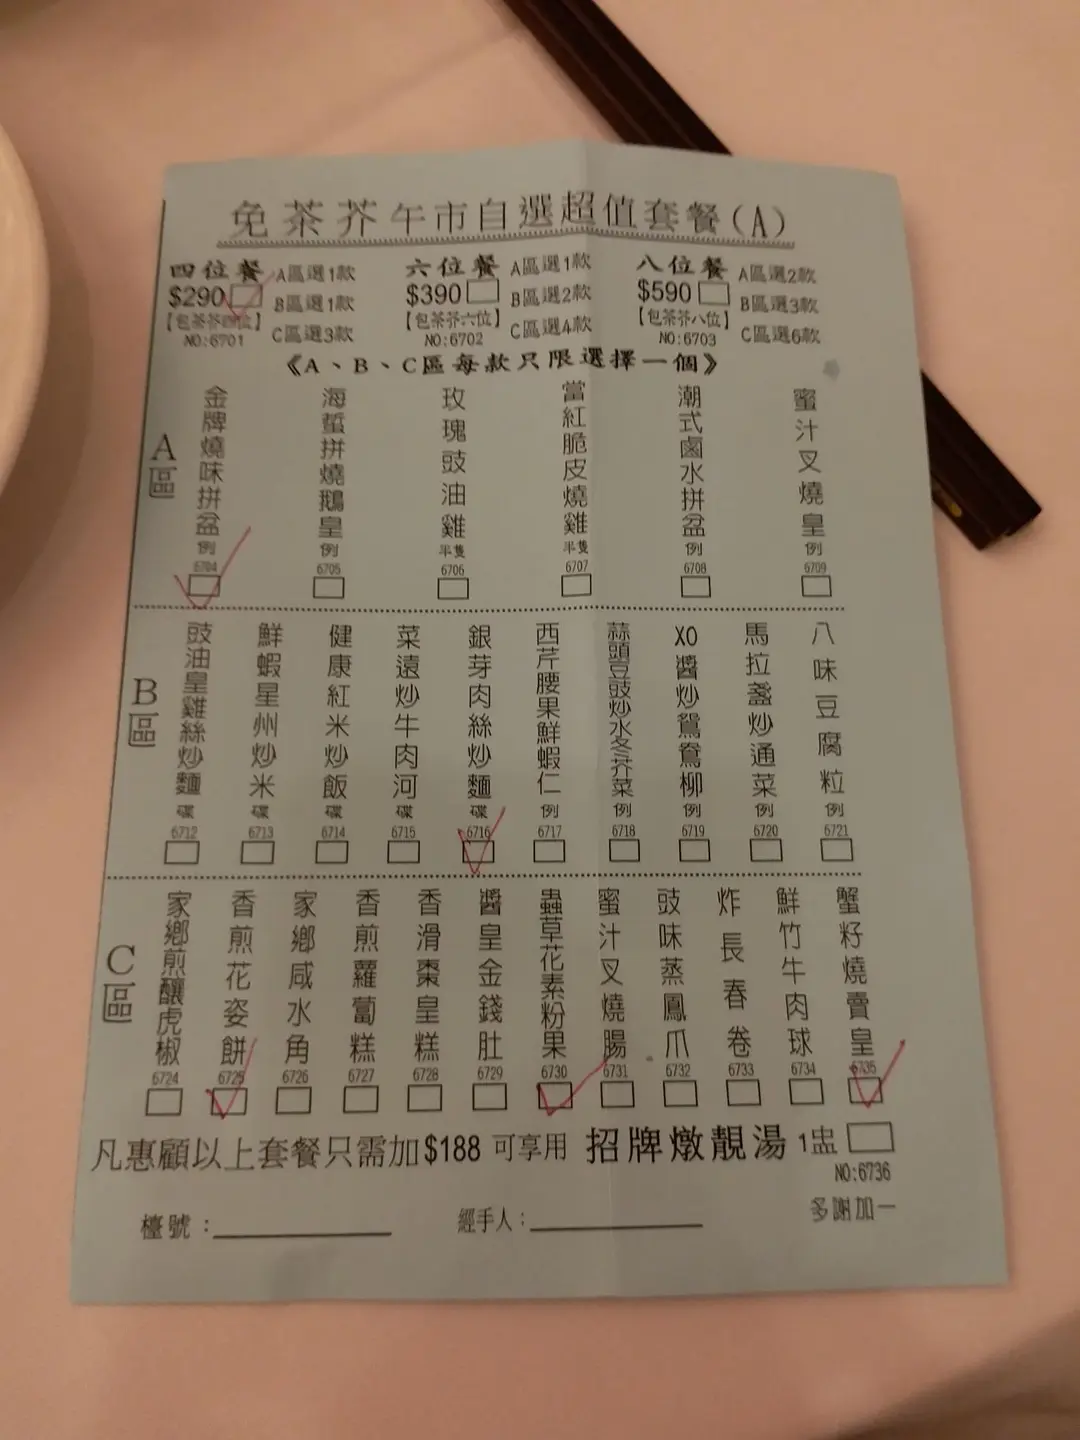 免茶芥午市自選超值套餐(A)
四位餐
$290
【包茶芥四位】
NO:6701
A區選1款
B區選1款
C區選3款
六位餐
$390
【包茶芥六位】
NO:6702
A區選1款
B區選2款
C區選4款
八位餐
$590
【包茶芥八位】
NO:6703
A區選2款
B區選3款
C區選6款
《A、B、C區每款只限選擇一個》
A區
金牌燒味拼盆 例 6704
海蜇拼燒鵝皇 例 6705
玫瑰豉油雞 半隻 6706
當紅脆皮燒雞 半隻 6707
潮式鹵水拼盆 例 6708
蜜汁叉燒皇 例 6709
B區
豉油皇雞絲炒麵 碟 6712
鮮蝦星州炒米 碟 6713
健康紅米炒飯 碟 6714
菜遠炒牛肉河 碟 6715
銀芽肉絲炒麵 碟 6716
西芹腰果鮮蝦仁 例 6717
蒜頭豆豉炒水冬芥菜 例 6718
XO醬炒鴛鴦柳 例 6719
馬拉盞炒通菜 例 6720
八味豆腐粒 例 6721
C區
家鄉煎釀虎椒 6724
香煎花姿餅 6725
家鄉咸水角 6726
香煎蘿蔔糕 6727
香滑棗皇糕 6728
醬皇金錢肚 6729
蟲草花素粉果 6730
蜜汁叉燒腸 6731
豉味蒸鳳爪 6732
炸長春卷 6733
鮮竹牛肉球 6734
蟹籽燒賣皇 6735
凡惠顧以上套餐只需加$188 可享用 招牌燉靚湯 1盅
NO:6736
多謝加一
檯號：
經手人：